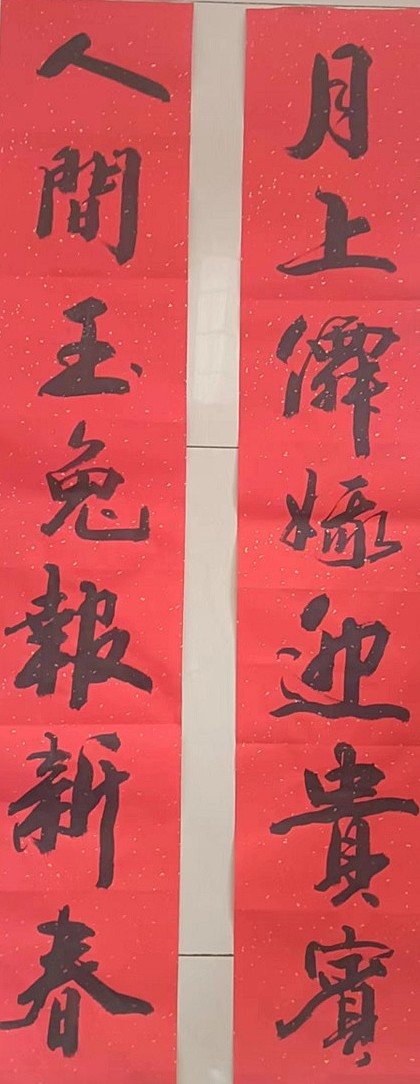 月上僊娥迎貴賓
人間玉兔報新春